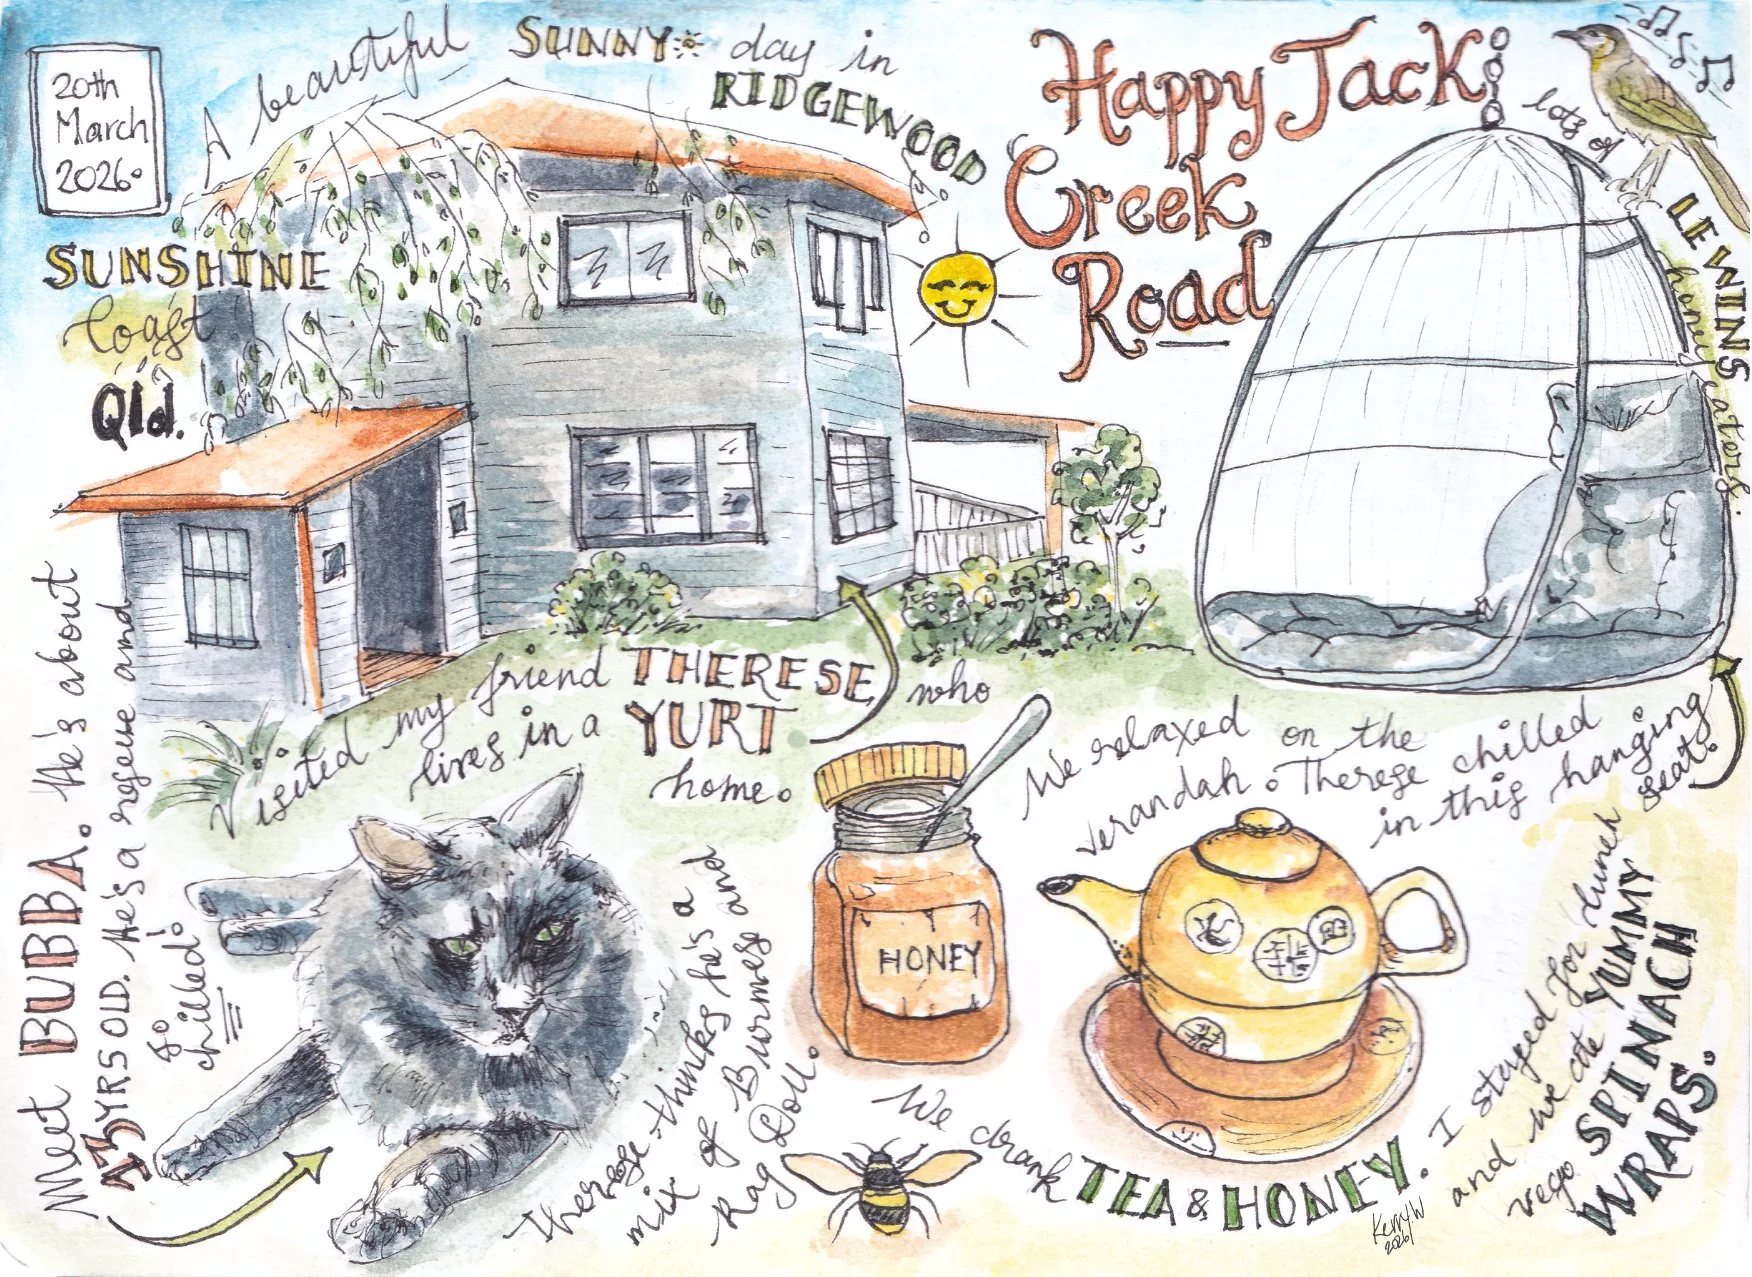 20th
March
2026.
A beautiful SUNNY day in
RIDGEWOOD
SUNSHINE
Coast
Qld.
Happy Jack
Creek
Road
lots of
LEWINS
honey eaters.
Visited my friend THERESE, who
lives in a YURT
home.
We relaxed on the
verandah. Therese chilled
in this hanging
seat.
Meet BUBBA. He's about
13 YRS OLD. He's a rescue and
so
chilled!
Therese thinks he's a
mix of Burmese and
Rag Doll.
HONEY
We drank
TEA & HONEY.
I stayed for lunch
and we ate YUMMY
vego SPINACH
WRAPS.
Kerry W
2026